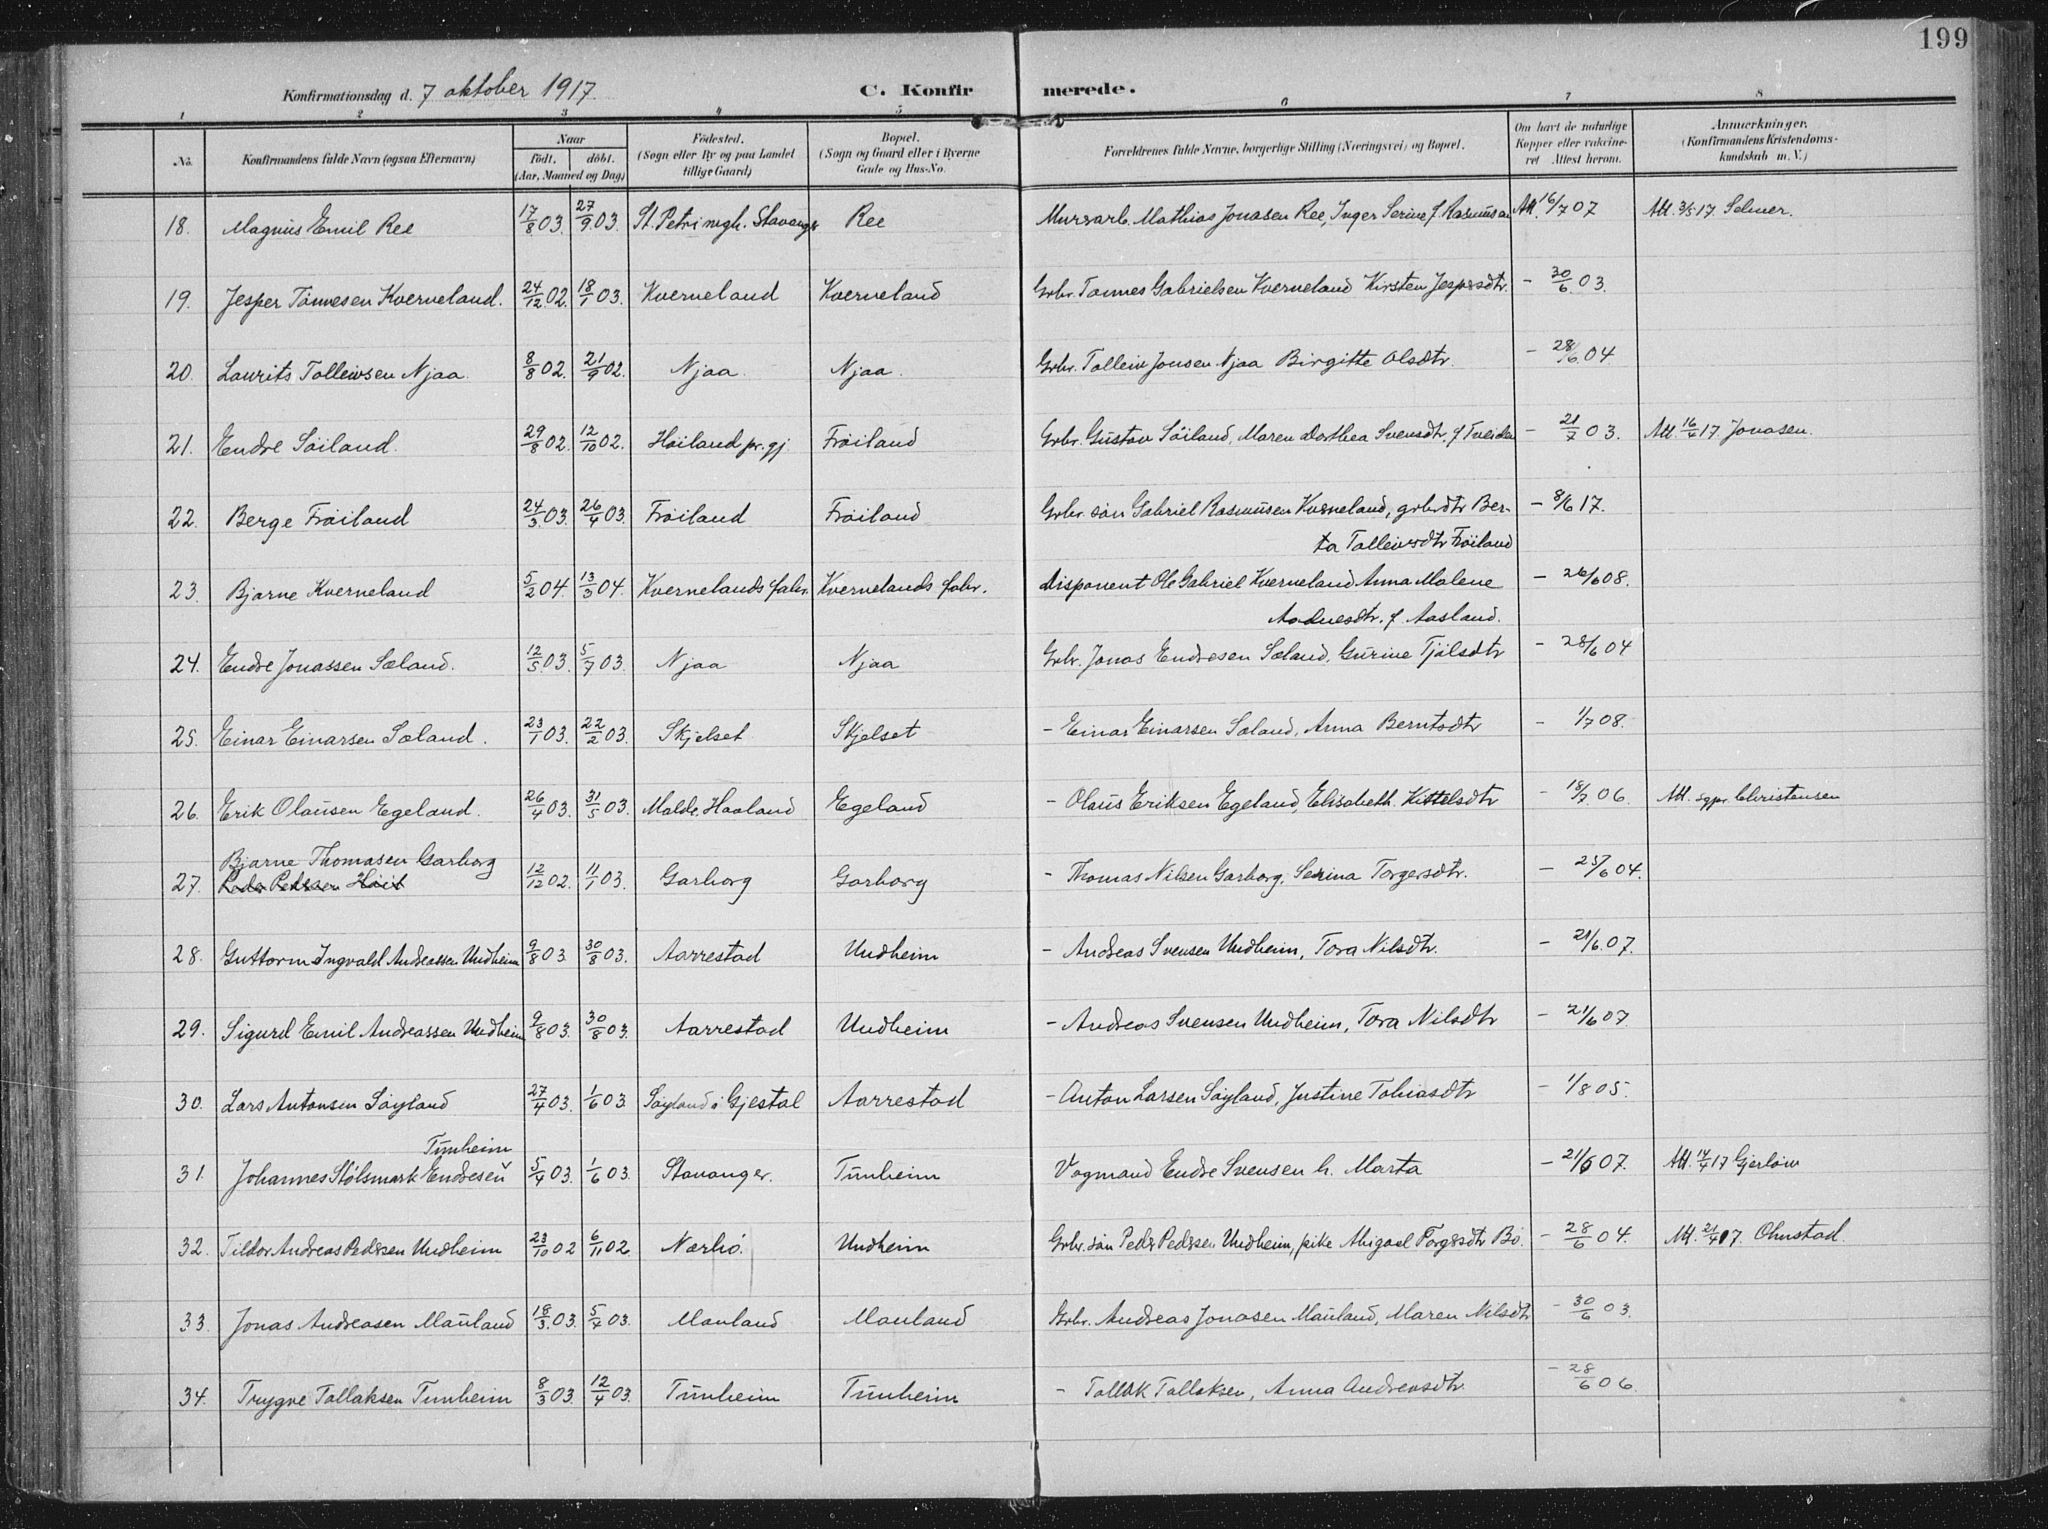 199
Konfirmationsdag d. 7 oktober 1917. C. Konfir merede.
1 2 3 4 5 6 7 8
No. Konfirmandens fulde Navn (ogsaa Efternavn) Naar födt. döbt. (Aar, Maaned og Dag) Födested. (Sogn eller By og paa Landet tillige Gaard) Bopæl. (Sogn og Gaard eller i Byerne Gade og Hus-No. Forældrenes fulde Navne, borgerlige Stilling (Næringsvei) og Bopæl. Om havt de naturlige Kopper eller vakcineret Attest herom. Anmærkninger. (Konfirmandens Kristendomskundskab m. V.)
18. Magnus Emil Ree 17/8 03. 27/9 03. St. Petri mgh. Stavanger Ree Murarb. Mathias Jonasen Ree, Inger Serine f. Rasmussen Att. 16/7 07 Att. 3/5 17. Selmer.
19. Jesper Tönnesen Kverneland. 24/12 02. 18/1 03. Kverneland Kverneland Grbr. Tönnes Gabrielsen Kverneland Kirsten Jespersdtr. - 30/6 03.
20. Laurits Tolleivsen Njaa. 8/8 02. 21/9 02. Njaa. Njaa. Grbr. Tolleiv Jonsen Njaa Birgitte Olsdtr. - 28/6 04
21. Endre Söiland. 29/8 02. 12/10 02. Höiland pr.gj. Fröiland Grbr. Gustav Söiland, Maren Dorthea Svensdtr. f Tveiden - 21/7 03. Att. 16/4 17. Jonasen.
22. Berge Fröiland 24/3 03. 26/4 03. Fröiland Fröiland Grbr. sön Gabriel Rasmusen Kverneland, grbr.dtr Ber- - 8/6 17.
ta Tolleivsdtr Fröiland
23. Bjarne Kverneland 5/2 04. 13/3 04. Kvernelands fabr. Kvernelands fabr. Disponent Ole Gabriel Kverneland Anna Malene - 26/6 08.
Aadnesdtr. f Aasland.
24. Endre Jonassen Sæland. 12/5 03. 5/7 03. Njaa Njaa Grbr. Jonas Endresen Sæland, Gurine Tjölsdtr - 28/6 04
25. Einar Einarsen Sæland. 23/1 03. 22/2 03. Skjelset Skjelset - Einar Einarsen Sæland, Anna Berntsdtr - 1/7 08.
26. Erik Olausen Egeland. 26/4 03. 31/5 03. Malde, Haaland Egeland - Olaus Eriksen Egeland, Elisabeth Kittelsdtr - 18/7 06. Att. sgpr. Christensen
Bjarne Thomasen Garborg
27. Peder Pedersen Höit 12/12 02. 11/1 03. Garborg Garborg - Thomas Nilsen Garborg, Serina Torgersdtr. - 25/6 04.
28. Guttorm Ingvald Andreassen Undheim 9/8 03. 30/8 03. Aarrestad Undheim - Andreas Svensen Undheim, Tora Nilsdtr. - 21/6 07.
29. Sigurd Emil Andreassen Undheim 9/8 03. 30/8 03. Aarrestad Undheim - Andreas Svensen Undheim, Tora Nilsdtr - 21/6 07.
30. Lars Antonsen Söyland 27/4 03. 1/6 03. Söyland i Gjestal Aarrestad - Anton Larsen Söyland, Justine Tobiasdtr - 1/8 05.
Tunheim
31. Johannes Stölsmark Endresen 5/4 03. 1/6 03. Stavanger. Tunheim Vognmand Endre Svensen h. Marta - 21/6 07. Att. 14/4 17 Gjerløw
32. Tildor Andreas Pedersen Undheim 23/10 02 6/11 02. Nærbö. Undheim Grbr. sön Peder Pedersen Undheim, pike Abigael Torgersdtr Bö. - 28/6 04. Att. 21/4 17. Ohnstad.
33. Jonas Andreasen Mauland 18/3 03. 5/4 03. Mauland Mauland Grbr. Andreas Jonasen Mauland, Maren Nilsdtr - 30/6 03.
34. Trygve Tollaksen Tunheim 8/3 03. 12/4 03. Tunheim Tunheim - Tollak Tollaksen, Anna Andreasdtr. - 28/6 06.